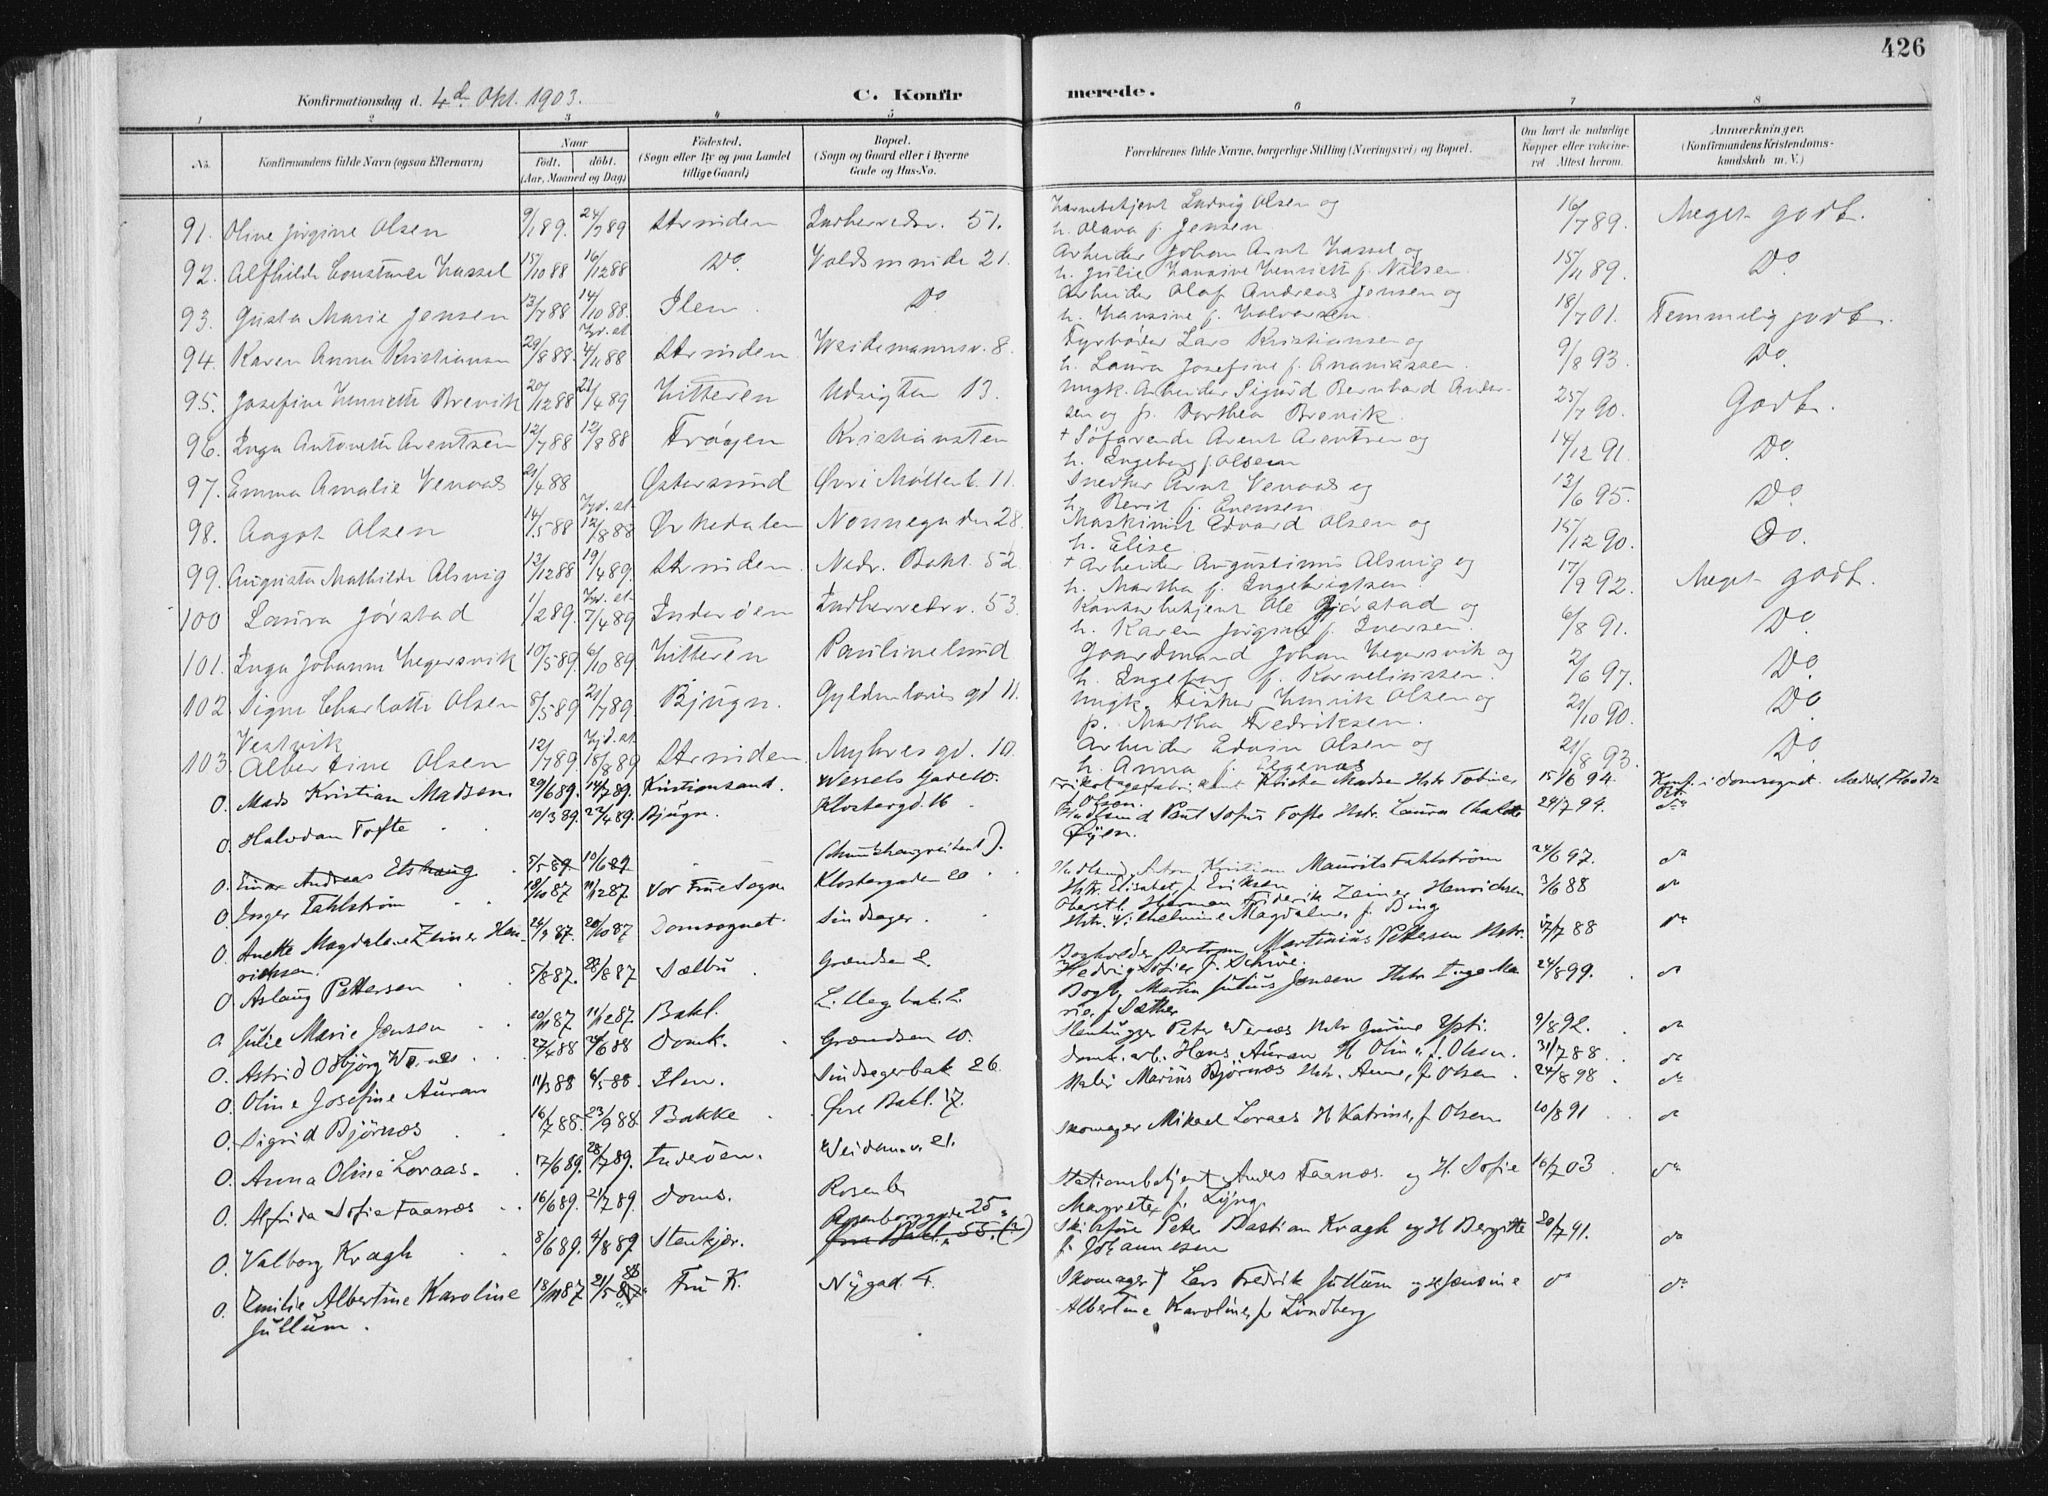 426
Konfirmationsdag d. 4de Okt. 1903.
C. Konfirmerede.
1 2 3 4 5 6 7 8
No.
Konfirmandens fulde Navn (ogsaa Efternavn)
Naar
født. døbt.
(Aar, Maaned og Dag)
Fødested.
(Sogn eller By og paa Landet
tillige Gaard)
Bopæl.
(Sogn og Gaard eller i Byerne
Gade og Hus-No.
Forældrenes fulde Navne, borgerlige Stilling (Næringsvei) og Bopæl.
Om havt de naturlige
Kopper eller vakcine-
ret Attest herom.
Anmærkninger.
(Konfirmandens Kristendoms-
kundskab m. V.)
91. Oline Jørgine Olsen 9/1 89. 24/3 89 Strinden Indherredsv. 51. Ludvig Olsen og
h. Olava f. Jensen 16/7 89. Meget godt.
92. Alfhilde Constance Hassel 15/10 88 16/12 88 Do. Voldsminde 21. Arbeider Johan Arnt Hassel og
h. Julie Hansine Henriette f. Nilsen. 15/11 89. Do
93. Gusta Marie Jensen 13/7 88 14/10 88. Ilen. Do Arbeider Olaf Andreas Jensen og
h. Hansine f. Halvorsen 18/7 01. Temmelig godt.
94. Karen Anna Kristiansen 29/8 88. 4/11 88 Strinden Weidemannsv. 8. Fyrbøder Lars Kristiansen og
h. Laura Josefine f. Ananiassen 9/8 93. Do
95. Josefine Henriette Brevik 20/12 88 21/4 89 Hitteren Udsigten 13. Ungk. Arbeider Sigurd Bernhard Ander-
sen og p. Dorthea Brevik. 25/7 90. Godt.
96. Inga Antonette Arentsen 12/7 88 12/8 88 Frøyen Kristiansten + Søfarende Arent Arentsen og
h. Ingeborg f. Olsen 14/12 91. Do.
97. Emma Amalie Venaas 21/4 88 Østersund Øvre Møllenb. 11. Snedker Arnt Venaas og
h. Berit f. Evensen 13/6 95. Do
98. Aagot Olsen 14/5 88 12/8 88 Ørkedalen Nonnegaden 28. Maskinist Edvard Olsen og
h. Elise 15/12 90. Do.
99. Augusta Mathilde Alsvig 13/12 88 19/4 89. Strinden. Nedr. Bakl. 52. + Arbeider Augustinus Alsvig og
h. Martha f. Ingebrigtsen. 17/9 92. Meget godt.
100 Laura Jørstad 1/2 89. 7/4 89 Inderøen Indherredsv. 53. Kontorbetjent Ole Jørstad og
h. Karen Jørgine f. Iversen. 6/8 91. Do
101. Inga Johanne Hegersvik 10/5 89. 6/10 89 Hitteren Paulinelund Gaardmand Johan Hegersvik og
h. Ingeborg f. Korneliussen. 2/6 97. Do
102. Signe Charlotte Olsen 8/5 89 21/7 89. Bjugn. Gyldenløves gd 11. Ungk. Fisker Henrik Olsen og
p. Martha Fredriksen. 21/10 90. Do
Vestvik
103. Albertine Olsen 12/7 89 Hjd. dt. 18/8 89 Strinden. Myhresgd. 10. Arbeider Edvin Olsen og
h. Anna f. Elgenæs 21/8 93. Do
0. Mads Kristian Madsen 29/6 89. 14/7 89. Kristiansand. Wessels Gade 10. Madsen Hstr Tobine
f. Olsen. 15/6 94. Konf. i Domsognet.
0. Halvdan Tofte 10/3 89. 27/4 89. Bjugn. Klostergd. 16 Paul Sofus Tofte Hstr. Laura
Øyen. 24/7 94. do
0. Einar Andreas Elshaug 5/5 89 10/6 89
0. Inger Fahlström 19/10 87 11/12 87 Vor Frue Sogn Klostergaden 20 Kristian Maurits Fahlström
Hstr. Elisabet f. Eriksen 24/6 97. do
0. Anette Magdalene Zeiner Hen-
richsen. 24/9 87. 20/10 87 Domsognet. Sindsager. Oberstl. Herman Friderik Zeiner Henrichsen
Hstr. Vilhelmine Magdalene f. Bing 3/6 88 do
0. Aslaug Pettersen 5/8 87. 28/8 87 Sælbu Grændsen 2. Bogholder Martinius Pettersen Hstr.
Hedvig Sofie f. 17/7 88 do
0. Julie Marie Jensen 20/11 87 11/12 87. Bakl. Bogh. Martin Julius Jensen Hstr Inga Ma
rie, f. Sæther 24/8 99. do
0. Astrid Odbjørg Wernes 27/4 88 24/6 88 Domk. Grændsen 10. Stenhugger Peter Wernæs Hstr Gurine 9/8 92. do
0. Oline Josefine Auran 11/3 88 6/5 88. Ilen. Sindsagerbak 26 Hans Auran H Oline f. Olsen. 31/7 88. do
0. Sigrid Bjørnæs 16/7 88. 23/9 88. Bakke Øvre Bakl. 17. Maler Marius Bjørnæs Hstr. Anne, f. Olsen 24/8 98. do
0. Anna Oline Loraas. 17/6 89. 28/7 89. Inderøen. Weidem.v. 21. Skomager Mikael Loraas H Katrine, f. Olsen 20/8 91 do
0. Alfrida Sofie Faanæs 16/6 89. 21/7 89. Doms. Rosenb. Stationsbetjent Anders Faanæs. og H. Sofie
Magrete f. Lyng. 16/7 03. do
0. Valborg Kragh 8/6 89. 4/8 89. Stenkjær. Rosenborggade 25
Øvre Bakl. 55. Peter Bastian Kragh og H Bergitte
f. Johannesen 20/7 91. do
0. Emilie Albertine Karoline
Jullum. 18/11 87 21/5 88 Fru K. Nygad 4. Skomager † Lars Fredrik Jullum og H Jensine
Albertine Karoline, f. Lindberg do do